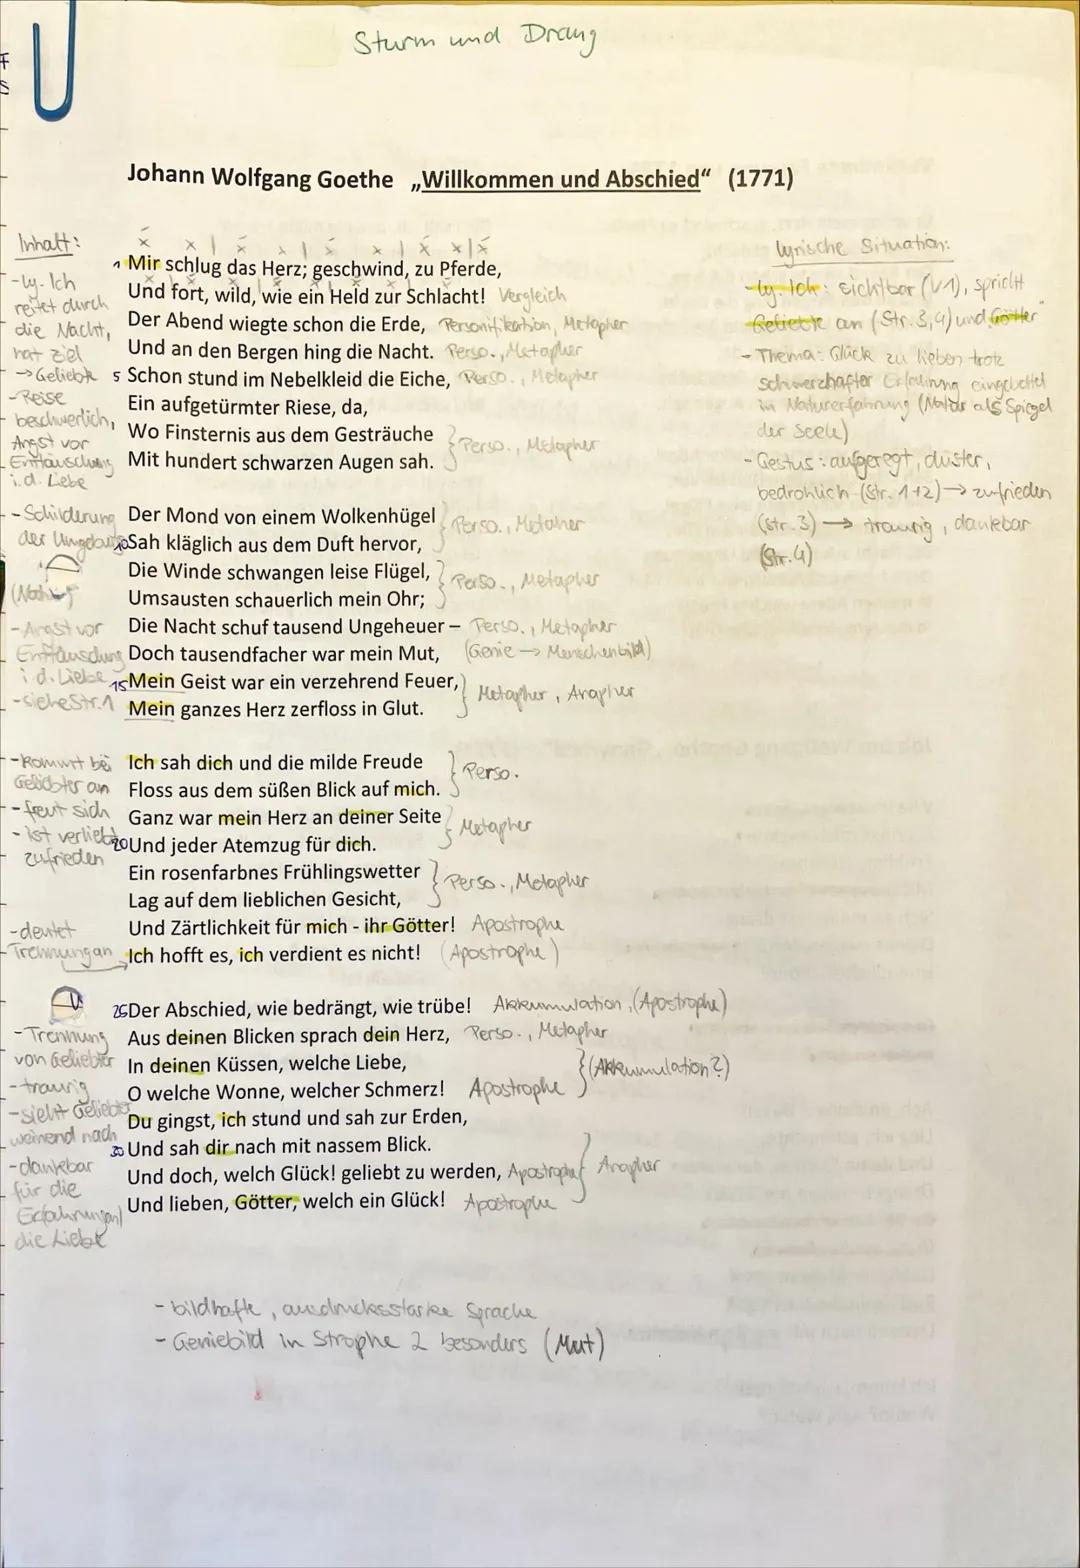 Sturm und Drang
Johann Wolfgang Goethe „Willkommen und Abschied“ (1771)
Inhalt:
-ly. Ich
reitet durch
die Nacht,
hat Ziel
→ Geliebte
-Reise
beschwerlich,
Angst vor
Enttäuschung
i.d. Liebe
-Schilderung
der Umgebung
-Angst vor
Enttäuschung
i d. Liebe
-siehe Str. 1
-kommt bei
Geliebter an
-freut sich
- ist verliebt
zufrieden
-deutet
Trennung an
-Trennung
von Geliebter
-traurig
-sieht Geliebter
weinend nach
-dankbar
für die
Erfahrungen/
die Liebe
1 Mir schlug das Herz; geschwind, zu Pferde,
Und fort, wild, wie ein Held zur Schlacht! Vergleich
Der Abend wiegte schon die Erde, Personifikation, Metapher
Und an den Bergen hing die Nacht. Perso., Metapher
5 Schon stund im Nebelkleid die Eiche, Perso., Metapher
Ein aufgetürmter Riese, da,
Wo Finsternis aus dem Gesträuche
Mit hundert schwarzen Augen sah. Perso., Metapher
Der Mond von einem Wolkenhügel Perso., Metapher
10 Sah kläglich aus dem Duft hervor,
Die Winde schwangen leise Flügel, Perso., Metapher
Umsausten schauerlich mein Ohr;
Die Nacht schuf tausend Ungeheuer – Perso., Metapher
Doch tausendfacher war mein Mut, (Genie → Menschenbild)
15 Mein Geist war ein verzehrend Feuer, Metapher, Anapher
Mein ganzes Herz zerfloss in Glut.
Ich sah dich und die milde Freude Perso.
Floss aus dem süßen Blick auf mich.
Ganz war mein Herz an deiner Seite Metapher
20 Und jeder Atemzug für dich.
Ein rosenfarbnes Frühlingswetter Perso., Metapher
Lag auf dem lieblichen Gesicht,
Und Zärtlichkeit für mich - ihr Götter! Apostrophe
Ich hofft es, ich verdient es nicht! (Apostrophe)
25 Der Abschied, wie bedrängt, wie trübe! Akkumulation, (Apostrophe)
Aus deinen Blicken sprach dein Herz, Perso., Metapher
In deinen Küssen, welche Liebe, (Akkumulation?)
O welche Wonne, welcher Schmerz! Apostrophe
Du gingst, ich stund und sah zur Erden,
30 Und sah dir nach mit nassem Blick.
Und doch, welch Glück! geliebt zu werden, Apostrophe Anapher
Und lieben, Götter, welch ein Glück! Apostrophe
lyrische Situation:
-ly. Ich: sichtbar (V1), spricht
Geliebte an (Str. 3,4) und "Götter"
- Thema: Glück zu lieben trotz
schmerzhafter Erfahrung eingebettet
in Naturerfahrung (Natur als Spiegel
der Seele)
- Gestus: aufgeregt, düster,
bedrohlich (Str. 1+2) → zufrieden
(Str. 3) → traurig, dankbar
(Str. 4)
- bildhafte, ausdrucksstarke Sprache
- Geniebild in Strophe 2 besonders (Mut)